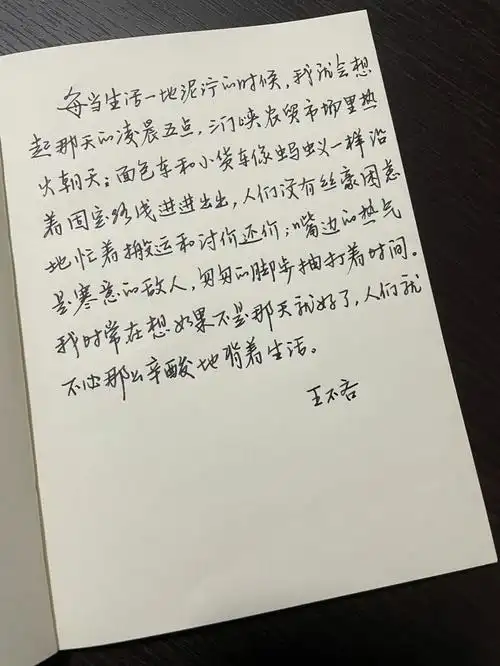 每当生活一地泥泞的时候，我就会想
起那天的凌晨五点，三门峡农贸市场里热
火朝天；面包车和小货车像蚂蚁一样沿
着固定路线进进出出，人们没有丝豪困意
地忙着搬运和讨价还价；嘴边的热气
是寒意的敌人，匆匆的脚步抽打着时间。
我时常在想如果不是那天就好了，人们就
不必那么辛酸地背着生活。
王不吝